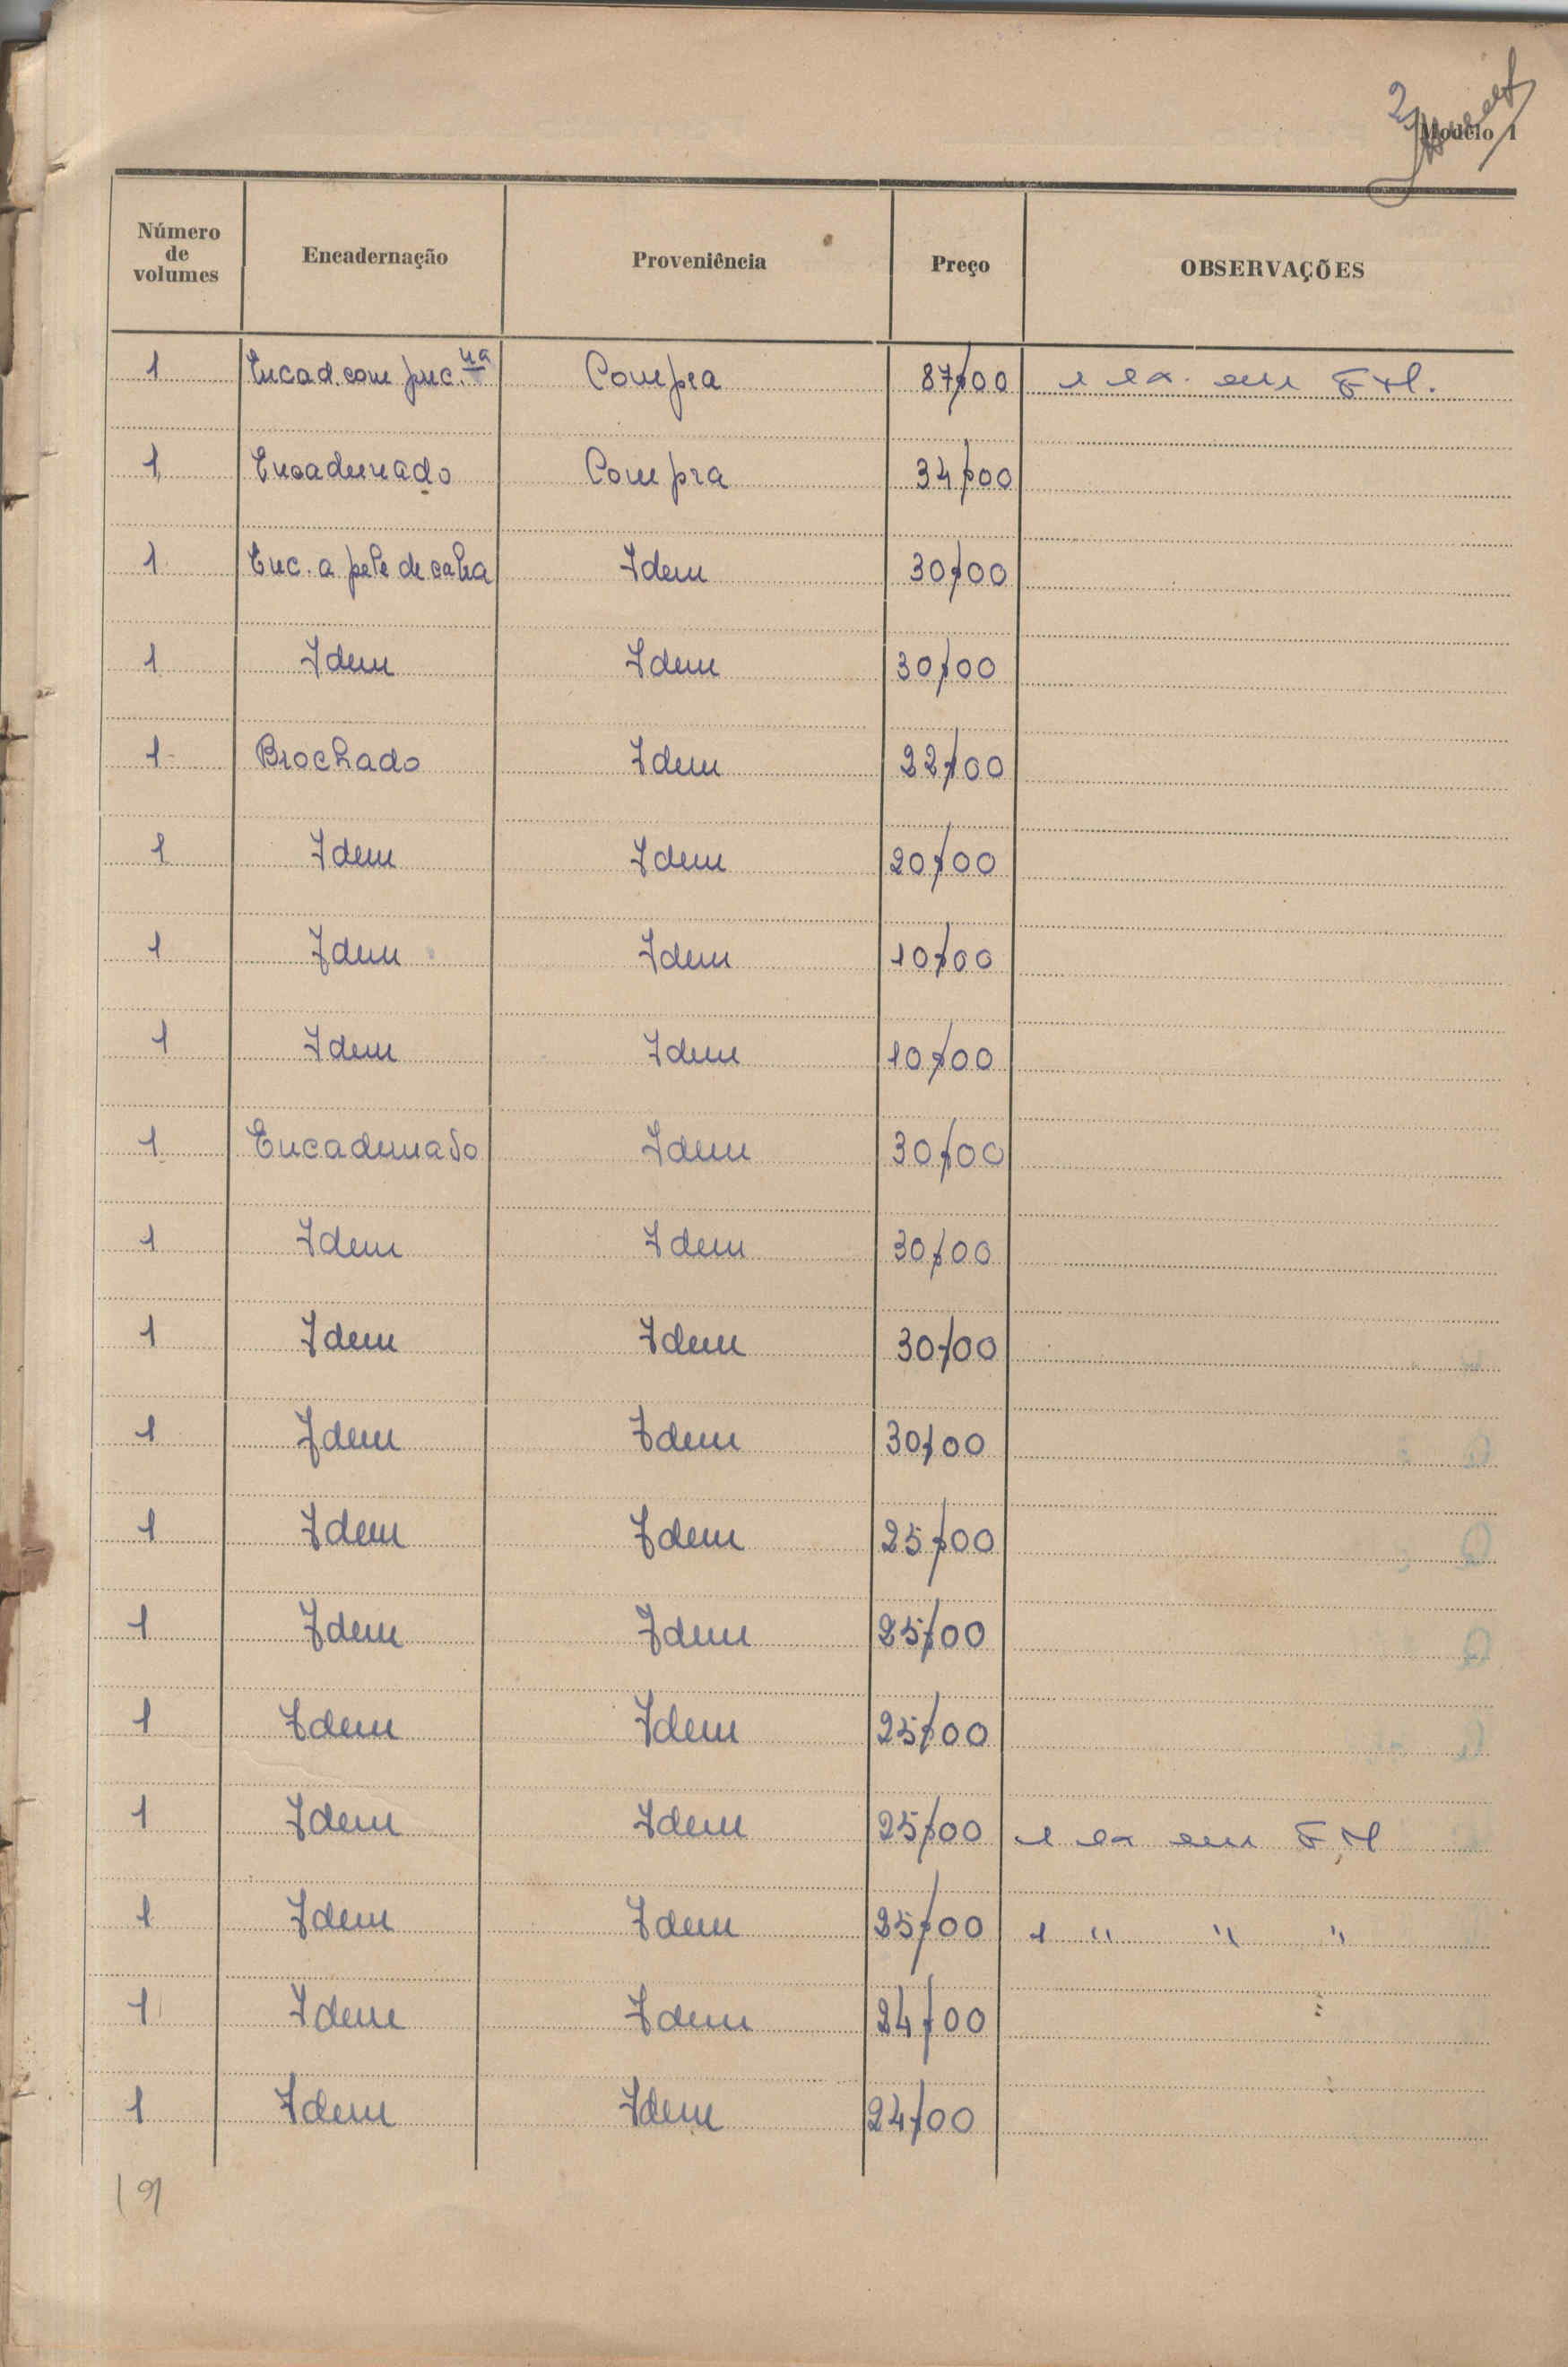 2
Modêlo 1
Número de volumes Encadernação Proveniência Preço OBSERVAÇÕES
1 Encad. com Compra 87$00 1 ex. em F. M.
1 Encadernado Compra 34$00
1 Enc. a pele de cabra Idem 30$00
1 Idem Idem 30$00
1 Brochado Idem 22$00
1 Idem Idem 20$00
1 Idem Idem 10$00
1 Idem Idem 10$00
1 Encadernado Idem 30$00
1 Idem Idem 30$00
1 Idem Idem 30$00
1 Idem Idem 30$00
1 Idem Idem 25$00
1 Idem Idem 25$00
1 Idem Idem 25$00
1 Idem Idem 25$00 1 ex em F. M
1 Idem Idem 25$00 1 " " "
1 Idem Idem 24$00
1 Idem Idem 24$00
19